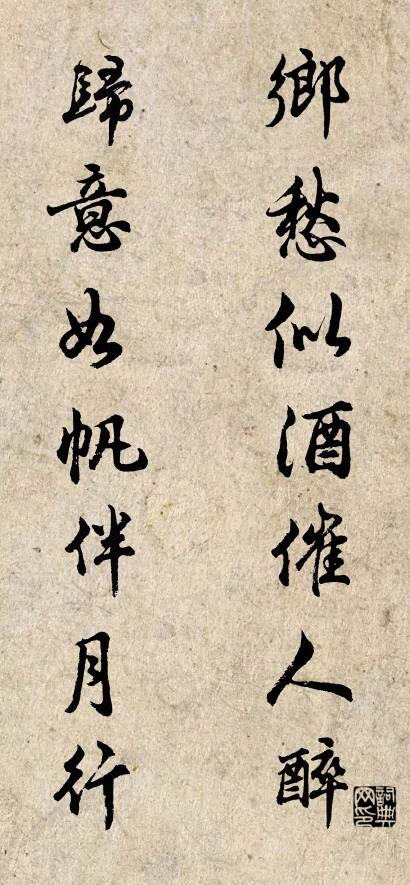 鄉愁似酒催人醉
歸意如帆伴月行
詞典网印